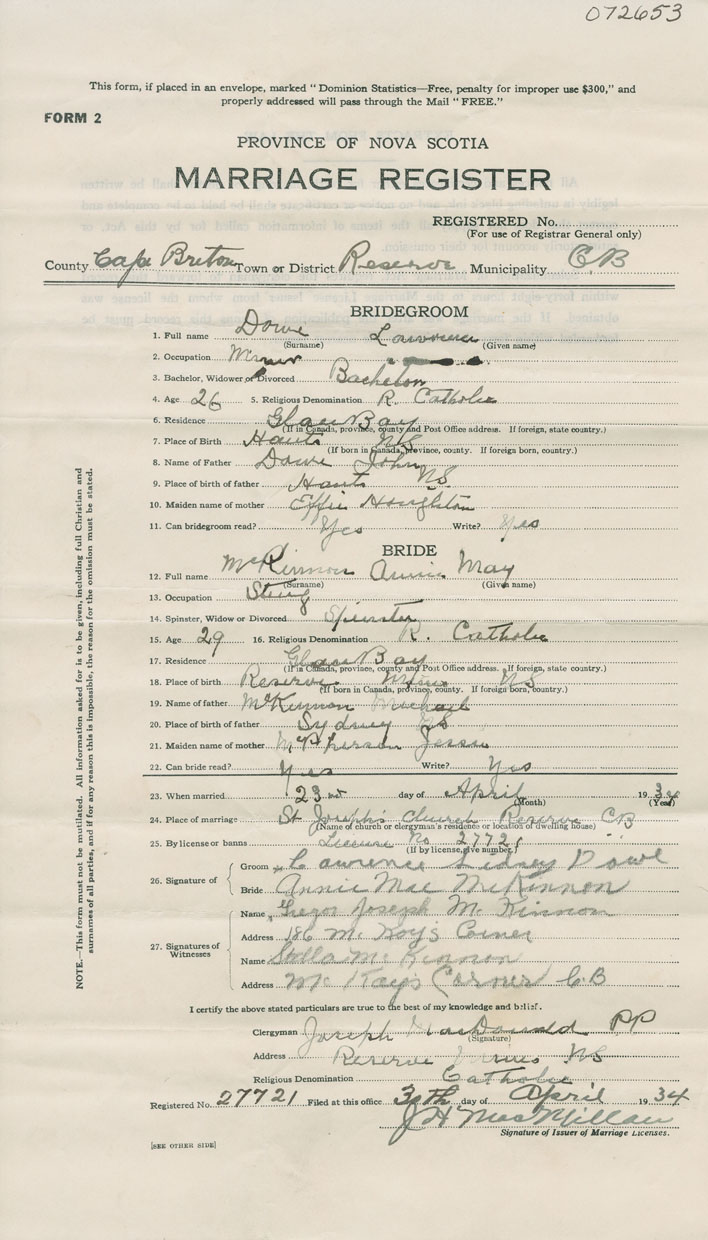 072653
This form, if placed in an envelope, marked “ Dominion Statistics—Free, penalty for improper use $300,” and
properly addressed will pass through the Mail “ FREE.”
FORM 2
PROVINCE OF NOVA SCOTIA
MARRIAGE REGISTER
REGISTERED No.
(For use of Registrar General only)
County Cape Breton Town or District Reserve Municipality C,B
BRIDEGROOM
1. Full name Dowe Lawrence
(Surname) (Given name)
2. Occupation Miner
3. Bachelor, Widower or Divorced Bachelor
4. Age 26 5. Religious Denomination R. Catholic
6. Residence Glace Bay
(If in Canada, province, county and Post Office address. If foreign, state country.)
7. Place of Birth Hants NS
(If born in Canada, province, county. If foreign born, country.)
8. Name of Father Dowe John
9. Place of birth of father Hants NS
10. Maiden name of mother Effie Houghton
11. Can bridegroom read? Yes Write? Yes
BRIDE
12. Full name McKinnon Annie May
(Surname) (Given name)
13. Occupation
14. Spinster, Widow or Divorced Spinster
15. Age 29 16. Religious Denomination R. Catholic
17. Residence Glace Bay
(If in Canada, province, county and Post Office address. If foreign, state country.)
18. Place of birth Reserve Mines NS
(If born in Canada, province, county. If foreign born, country.)
19. Name of father McKinnon Michael
20. Place of birth of father Sydney NS
21. Maiden name of mother McPherson Jessie
22. Can bride read? Yes Write? Yes
23. When married 23rd day of April 1934
(Month) (Year)
24. Place of marriage St Joseph's Church Reserve CB
(Name of church or clergyman's residence or location of dwelling house)
25. By license or banns License No 27721
(If by license, give number.)
26. Signature of
Groom Lawrence Sidney Dowe
Bride Annie Mae McKinnon
27. Signatures of Witnesses
Name Gregor Joseph McKinnon
Address 186 McKay's Corner
Name Stella McKinnon
Address McKay's Corner C.B
I certify the above stated particulars are true to the best of my knowledge and belief.
Clergyman Joseph MacDonald PP
(Signature)
Address Reserve Mines NS
Religious Denomination Catholic
Registered No. 27721 Filed at this office 30th day of April 1934
J H MacMillan
Signature of Issuer of Marriage Licenses.
[SEE OTHER SIDE]
NOTE.—This form must not be mutilated. All information asked for is to be given, including full Christian and
surnames of all parties, and if for any reason this is impossible, the reason for the omission must be stated.